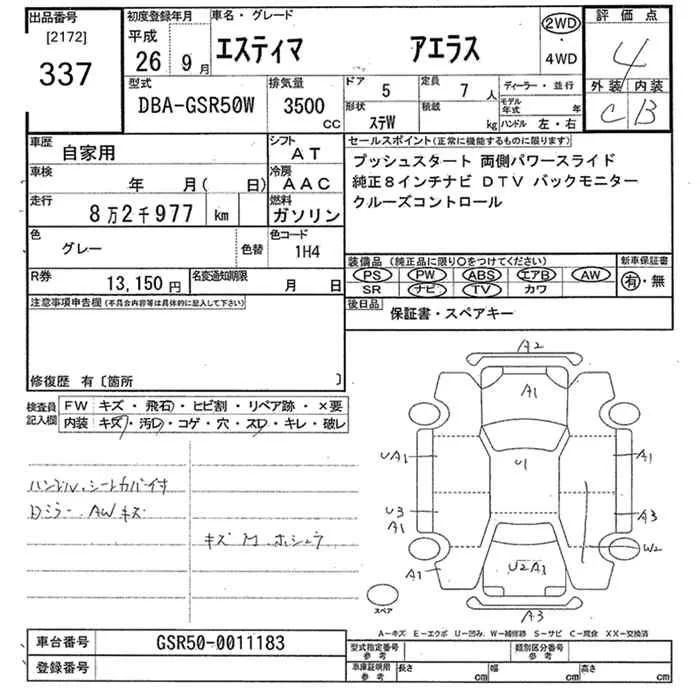 出品番号
[2172]
337
初度登録年月
平成
26 9月
車名・グレード
エスティマ アエラス
2WD
・
4WD
評価点
4
外装 内装
C B
型式
DBA-GSR50W
排気量
3500
CC
ドア
5
定員
7 人
形状
ステW
積載
kg
ディーラー・並行
モデル年式 年
ハンドル 左・右
車歴
自家用
シフト
AT
車検
年 月( 日)
冷房
AAC
走行
8万2千977 km
燃料
ガソリン
色
グレー
色替
色コード
1H4
R券
13,150円
名変通知期限
月 日
セールスポイント(正常に機能するものに限ります)
プッシュスタート 両側パワースライド
純正8インチナビ DTV バックモニター
クルーズコントロール
装備品(純正品に限り○をつけてください)
PS PW ABS エアB AW
SR ナビ TV カワ
新車保証書
有・無
後日品
保証書・スペアキー
注意事項申告欄(不具合内容等は具体的に記入して下さい)
修復歴 有〔箇所 〕
検査員記入欄
FW キズ・飛石・ヒビ割・リペア跡・×要
内装 キズ・汚レ・コゲ・穴・スレ・キレ・破レ
ハンドル、シートカバー付
Dミラー、AWキズ
キズ
A2
A1
UA1
U1
A1
U3
A1
A3
W2
A1
U2A3
A1
A3
スペア
A-キズ E-エクボ U-凹み W-補修跡 S-サビ C-腐食 XX-交換済
車台番号
GSR50-0011183
登録番号
型式指定番号
参考
類別区分番号
参考
車庫証明用
参考
長さ cm 幅 cm 高さ cm